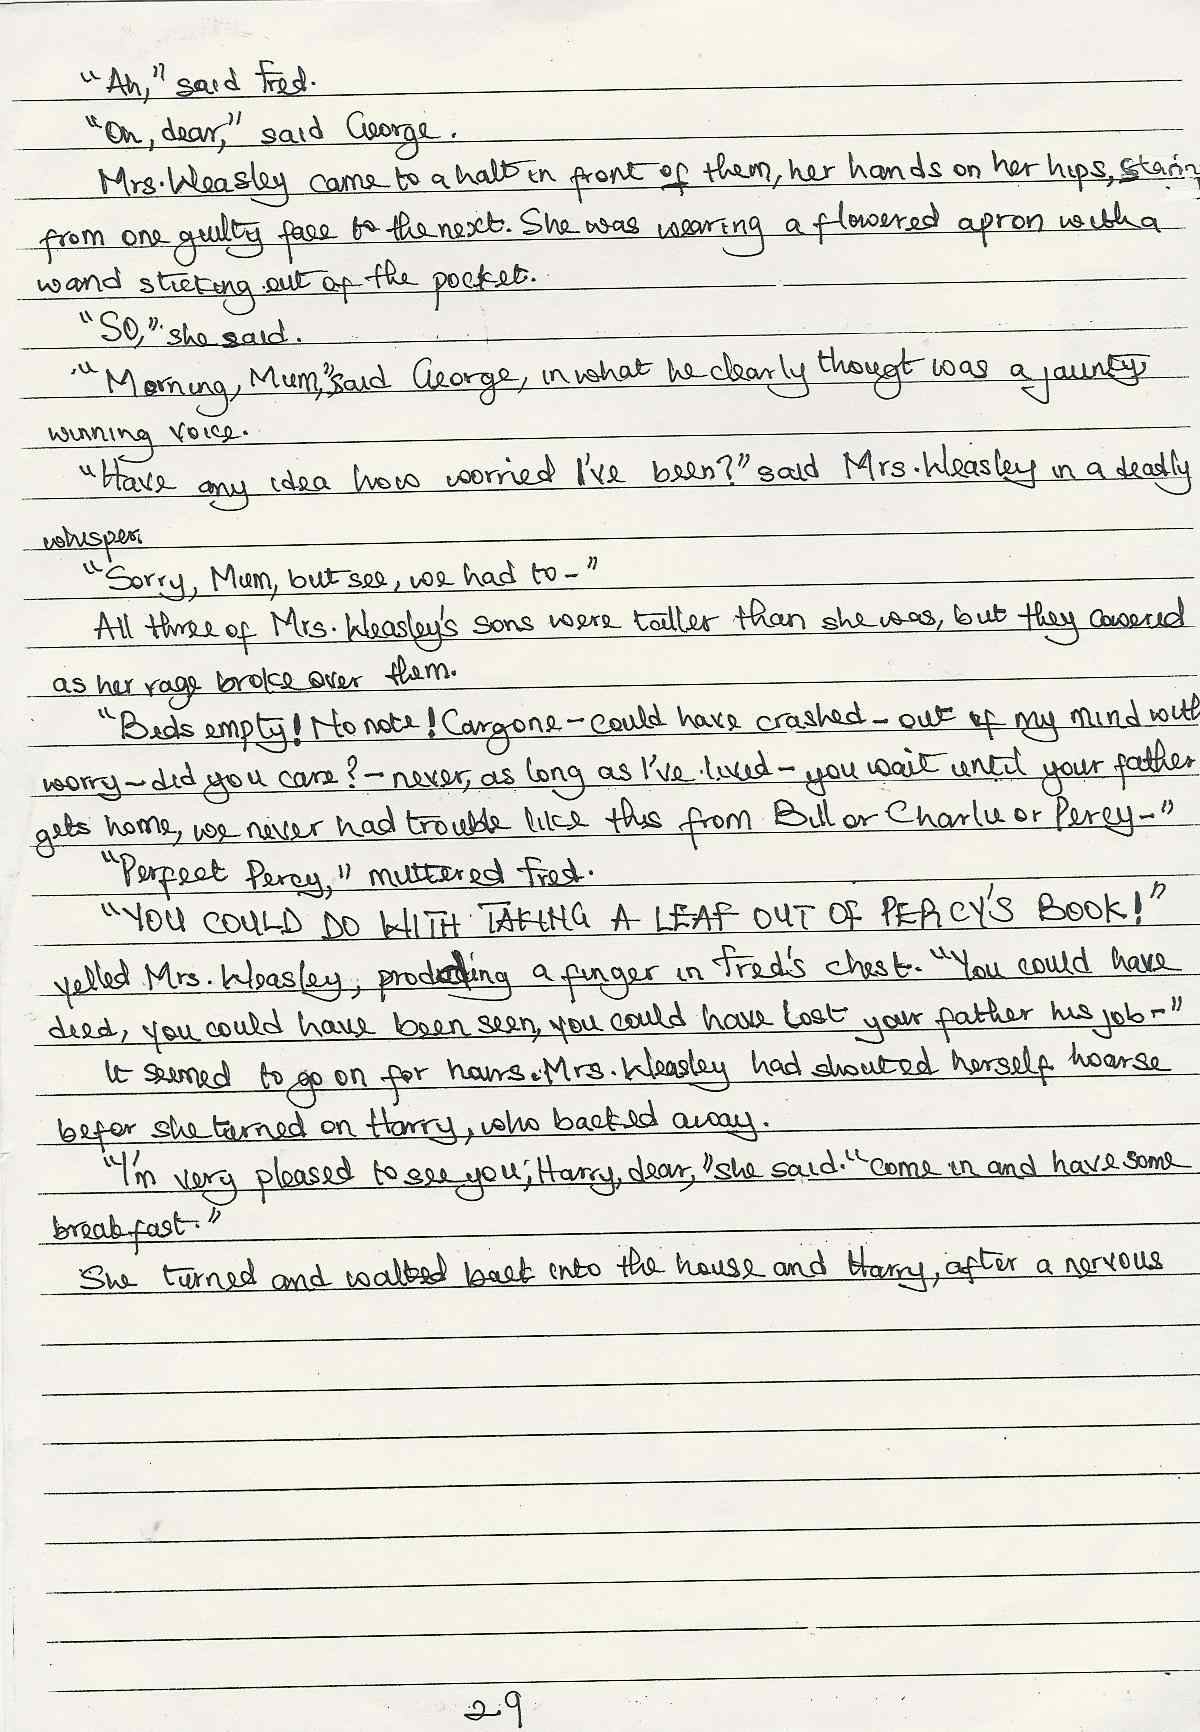 "Ah," said Fred.
"Oh, dear," said George.
Mrs. Weasley came to a halt in front of them, her hands on her hips, staring
from one guilty face to the next. She was wearing a flowered apron with a
wand sticking out of the pocket.
"So," she said.
"Morning, Mum," said George, in what he clearly thougt was a jaunty,
winning voice.
"Have any idea how worried I've been?" said Mrs. Weasley in a deadly
whisper.
"Sorry, Mum, but see, we had to—"
All three of Mrs. Weasley's sons were taller than she was, but they cowered
as her rage broke over them.
"Beds empty! No note! Car gone — could have crashed — out of my mind with
worry — did you care? — never, as long as I've lived — you wait until your father
gets home, we never had trouble like this from Bill or Charlie or Percy—"
"Perfect Percy," muttered Fred.
"YOU COULD DO WITH TAKING A LEAF OUT OF PERCY'S BOOK!"
yelled Mrs. Weasley, prodding a finger in Fred's chest. "You could have
died, you could have been seen, you could have lost your father his job—"
It seemed to go on for hours. Mrs. Weasley had shouted herself hoarse
befor she turned on Harry, who backed away.
"I'm very pleased to see you, Harry, dear," she said. "Come in and have some
breakfast."
She turned and walked back into the house and Harry, after a nervous
29